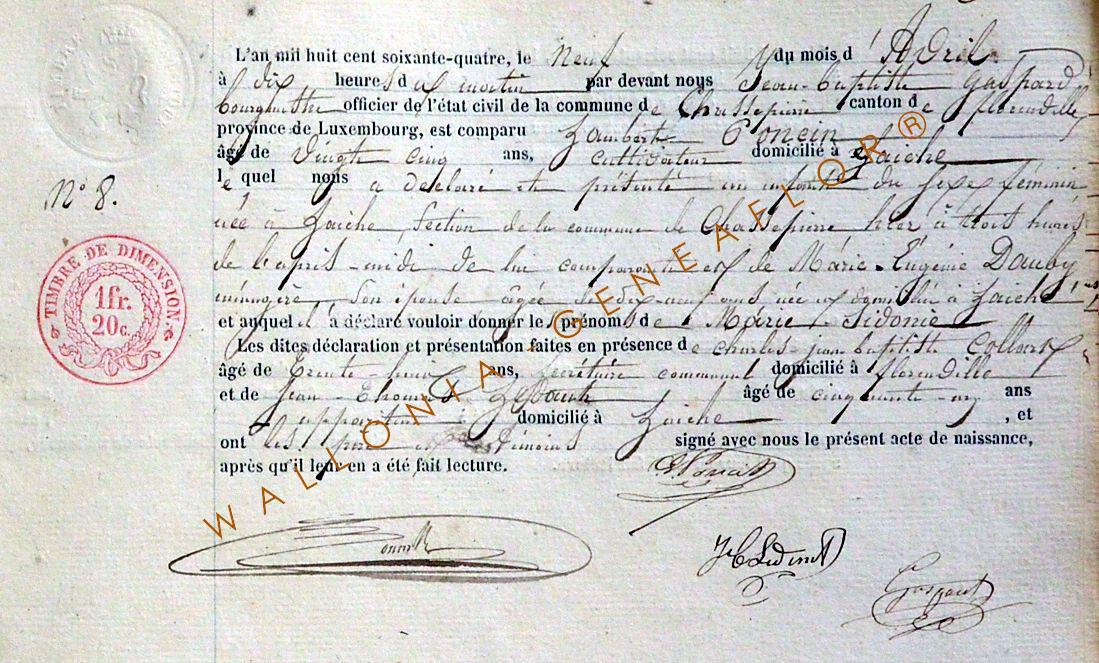 L'an mil huit cent soixante-quatre, le Neuf du mois d'Avril
à dix heures du matin par devant nous Jean-baptiste Gaspard
bourgmestre officier de l'état civil de la commune de Chassepierre canton de florenville
province de Luxembourg, est comparu Lambert Poncin
âgé de Vingt cinq ans, cultivateur domicilié à Laiche
lequel nous a déclaré et présenté un enfant du sexe feminin
née à Laiche, Section de la commune de Chassepierre hier à trois heures
de l'après-midi de lui comparant et de Marie-Eugénie Dauby
ménagère, Son épouse âgée de dix-neuf ans, née et domiciliée à Laiche
et auquel il a déclaré vouloir donner les prénoms de Marie Sidonie
Les dites déclaration et présentation faites en présence de Charles-jean-baptiste Collart
âgé de Trente ans, Secrétaire communal domicilié à florenville
et de Jean-Thomas âgé de cinquante ans
domicilié à Laiche, et
ont les père et témoins signé avec nous le présent acte de naissance,
après qu'il leur en a été fait lecture.
N° 8.
TIMBRE DE DIMENSION
1 fr.
20 c.
Gaspard
WALLONIA-GENEAFLOR®